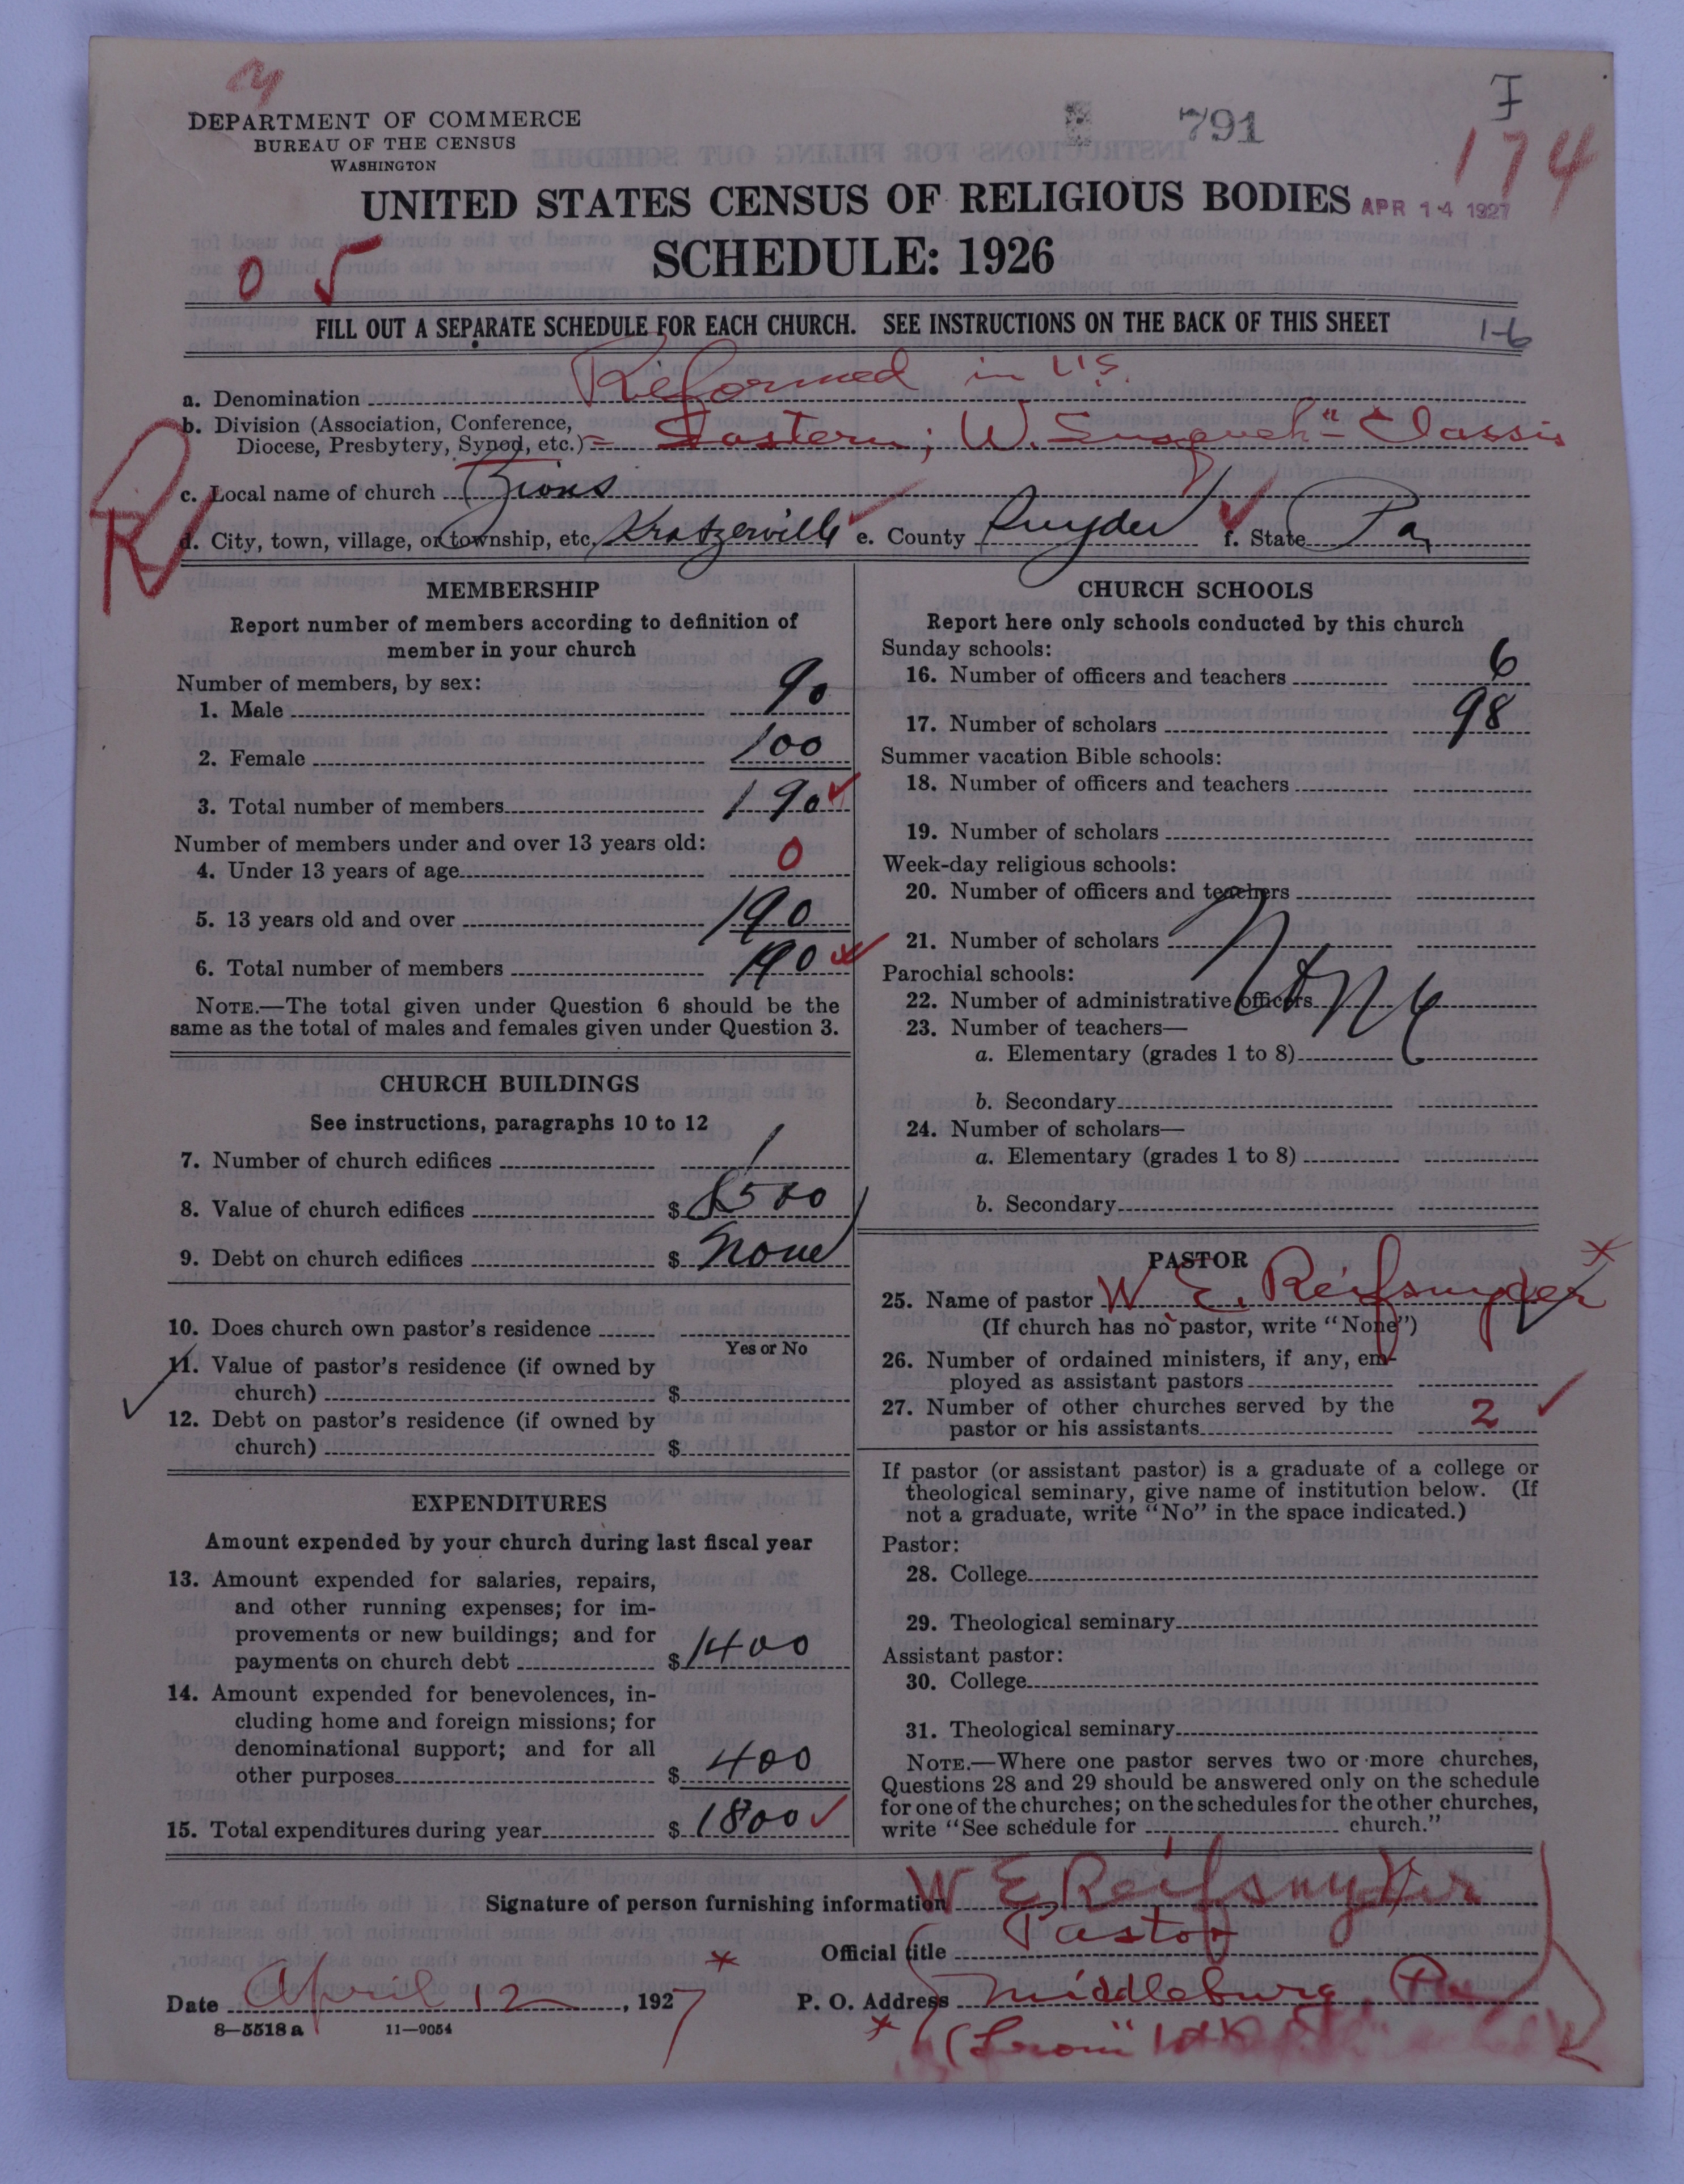 F
791
174
DEPARTMENT OF COMMERCE
BUREAU OF THE CENSUS
WASHINGTON
UNITED STATES CENSUS OF RELIGIOUS BODIES
APR 14 1927
SCHEDULE: 1926
0 5
FILL OUT A SEPARATE SCHEDULE FOR EACH CHURCH. SEE INSTRUCTIONS ON THE BACK OF THIS SHEET
1-6
a. Denomination Reformed in U.S.
b. Division (Association, Conference,
Diocese, Presbytery, Synod, etc.) = Eastern; W. Susqueh" Classis
c. Local name of church Zions
d. City, town, village, or township, etc. Kratzerville e. County Snyder f. State Pa
MEMBERSHIP
Report number of members according to definition of
member in your church
Number of members, by sex:
1. Male 90
2. Female 100
3. Total number of members 190
Number of members under and over 13 years old:
4. Under 13 years of age 0
5. 13 years old and over 190
6. Total number of members 190
NOTE.—The total given under Question 6 should be the
same as the total of males and females given under Question 3.
CHURCH BUILDINGS
See instructions, paragraphs 10 to 12
7. Number of church edifices 1
8. Value of church edifices $ 8500
9. Debt on church edifices $ None
10. Does church own pastor's residence
Yes or No
11. Value of pastor's residence (if owned by
church) $
12. Debt on pastor's residence (if owned by
church) $
EXPENDITURES
Amount expended by your church during last fiscal year
13. Amount expended for salaries, repairs,
and other running expenses; for im-
provements or new buildings; and for
payments on church debt $ 1400
14. Amount expended for benevolences, in-
cluding home and foreign missions; for
denominational support; and for all
other purposes $ 400
15. Total expenditures during year $ 1800
CHURCH SCHOOLS
Report here only schools conducted by this church
Sunday schools:
16. Number of officers and teachers 6
17. Number of scholars 98
Summer vacation Bible schools:
18. Number of officers and teachers
19. Number of scholars
Week-day religious schools:
20. Number of officers and teachers
21. Number of scholars
None
Parochial schools:
22. Number of administrative officers
23. Number of teachers—
a. Elementary (grades 1 to 8)
b. Secondary
24. Number of scholars—
a. Elementary (grades 1 to 8)
b. Secondary
PASTOR
25. Name of pastor W. E. Reifsnyder
(If church has no pastor, write "None")
26. Number of ordained ministers, if any, em-
ployed as assistant pastors
27. Number of other churches served by the
pastor or his assistants 2
If pastor (or assistant pastor) is a graduate of a college or
theological seminary, give name of institution below. (If
not a graduate, write "No" in the space indicated.)
Pastor:
28. College
29. Theological seminary
Assistant pastor:
30. College
31. Theological seminary
NOTE.—Where one pastor serves two or more churches,
Questions 28 and 29 should be answered only on the schedule
for one of the churches; on the schedules for the other churches,
write "See schedule for church."
Signature of person furnishing information W E Reifsnyder
Official title Pastor
Date April 12, 1927 P. O. Address Middleburg, Pa
8—5518 a 11—9054
(From